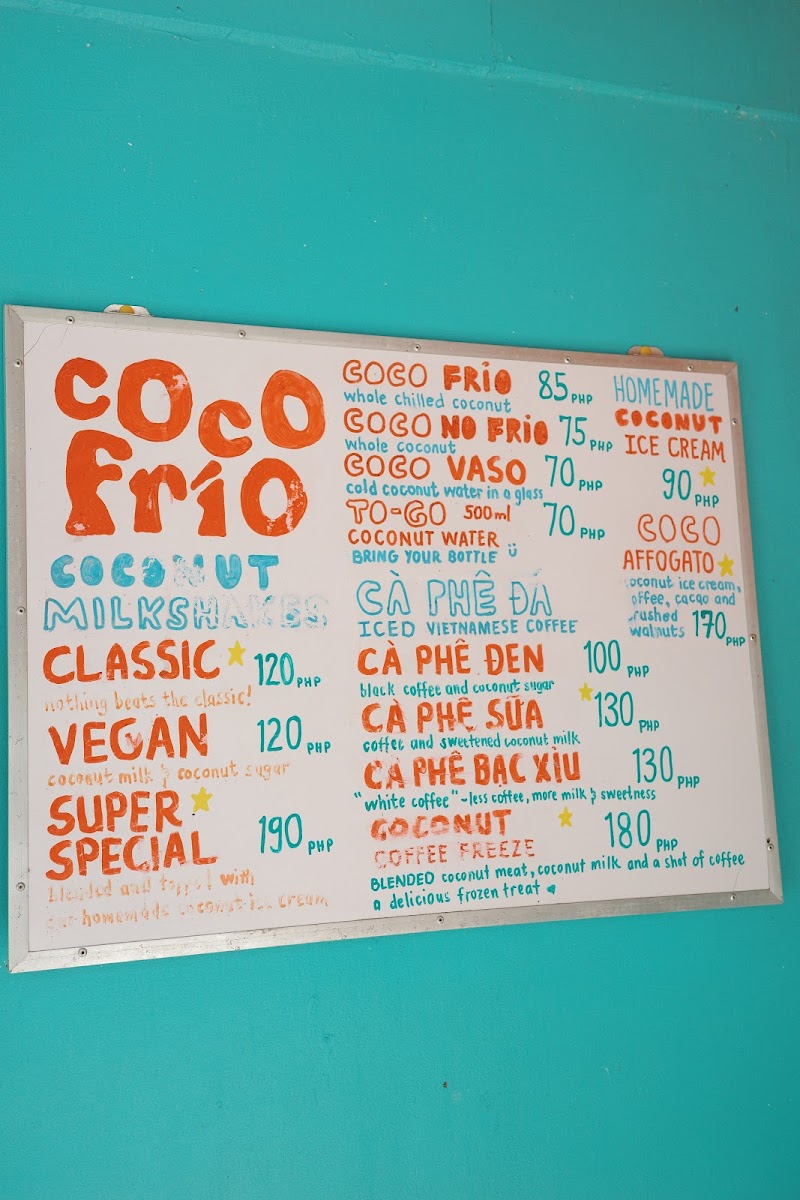 COCO
FRÍO
COCONUT
MILKSHAKES
CLASSIC 120 PHP
nothing beats the classic!
VEGAN 120 PHP
coconut milk & coconut sugar
SUPER
SPECIAL 190 PHP
blended and topped with
our homemade coconut ice cream
COCO FRÍO 85 PHP
whole chilled coconut
COCO NO FRÍO 75 PHP
whole coconut
COCO VASO 70 PHP
cold coconut water in a glass
TO-GO 500ml 70 PHP
COCONUT WATER
BRING YOUR BOTTLE
CÀ PHÊ ĐÁ
ICED VIETNAMESE COFFEE
CÀ PHÊ ĐEN 100 PHP
black coffee and coconut sugar
CÀ PHÊ SỮA 130 PHP
coffee and sweetened coconut milk
CÀ PHÊ BẠC XỈU 130 PHP
"white coffee" - less coffee, more milk & sweetness
COCONUT 180 PHP
COFFEE FREEZE
BLENDED coconut meat, coconut milk and a shot of coffee
a delicious frozen treat
HOMEMADE
COCONUT
ICE CREAM
90 PHP
COCO
AFFOGATO
coconut ice cream,
coffee, cacao and
crushed
walnuts 170 PHP